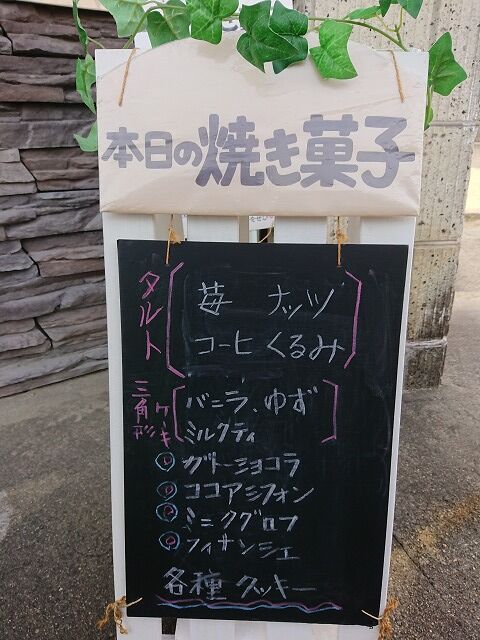 本日の焼き菓子
タルト
苺 ナッツ
コーヒ くるみ
三角形ケーキ
バニラ、ゆず
ミルクティ
ガトーショコラ
ココアシフォン
ミニクグロフ
フィサンシェ
各種 クッキー